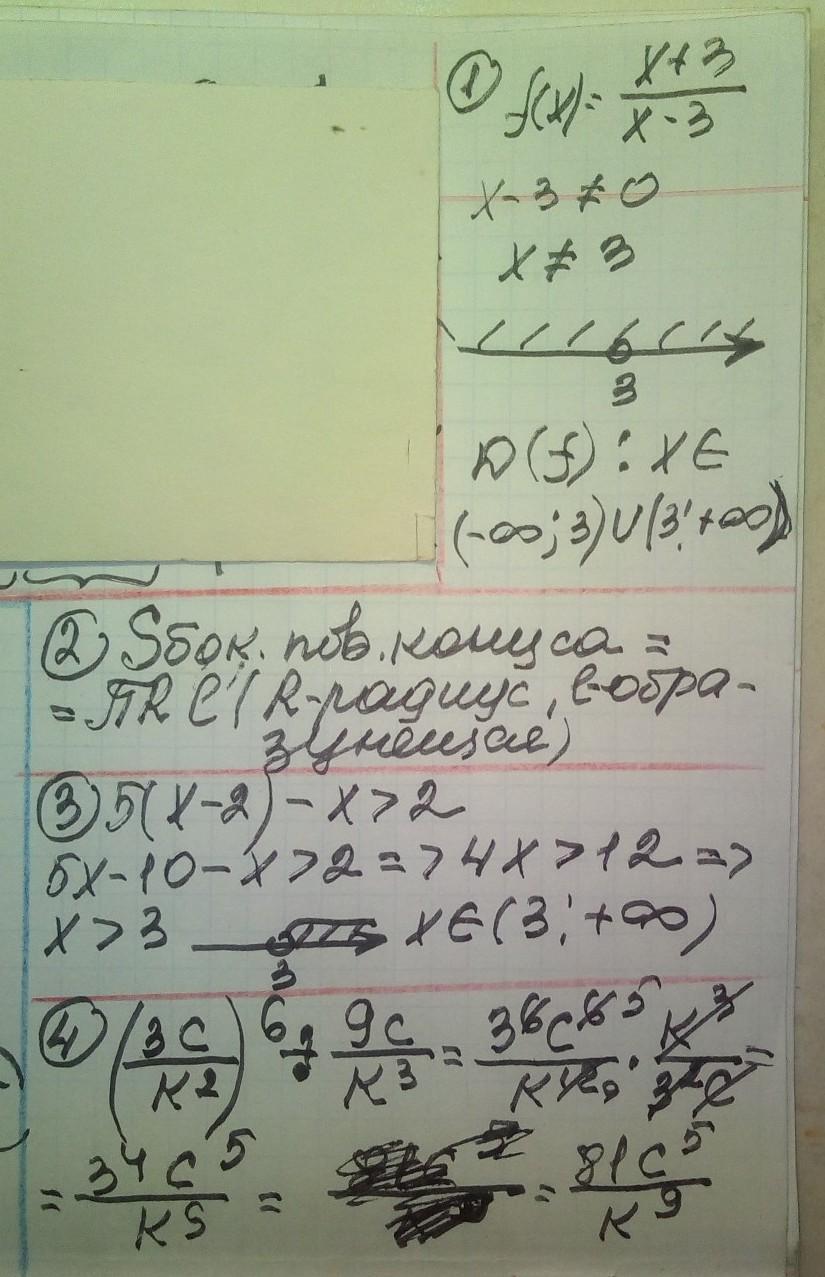 ① f(x) = (x+3)/(x-3)
x-3≠0
x≠3
3
D(f): x∈
(-∞;3)∪(3;+∞)
② Sбок. пов. конуса =
= πRℓ (R-радиус, ℓ-обра-
зующая)
③ 5(x-2) - x > 2
5x-10-x>2 => 4x>12 =>
x>3 x∈(3;+∞)
3
④ (3c/k²)⁶ : 9c/k³ = 3⁶c⁶ ⁵/k¹² ⁹ · k³/3²c =
= 3⁴c⁵/k⁹ = = 81c⁵/k⁹